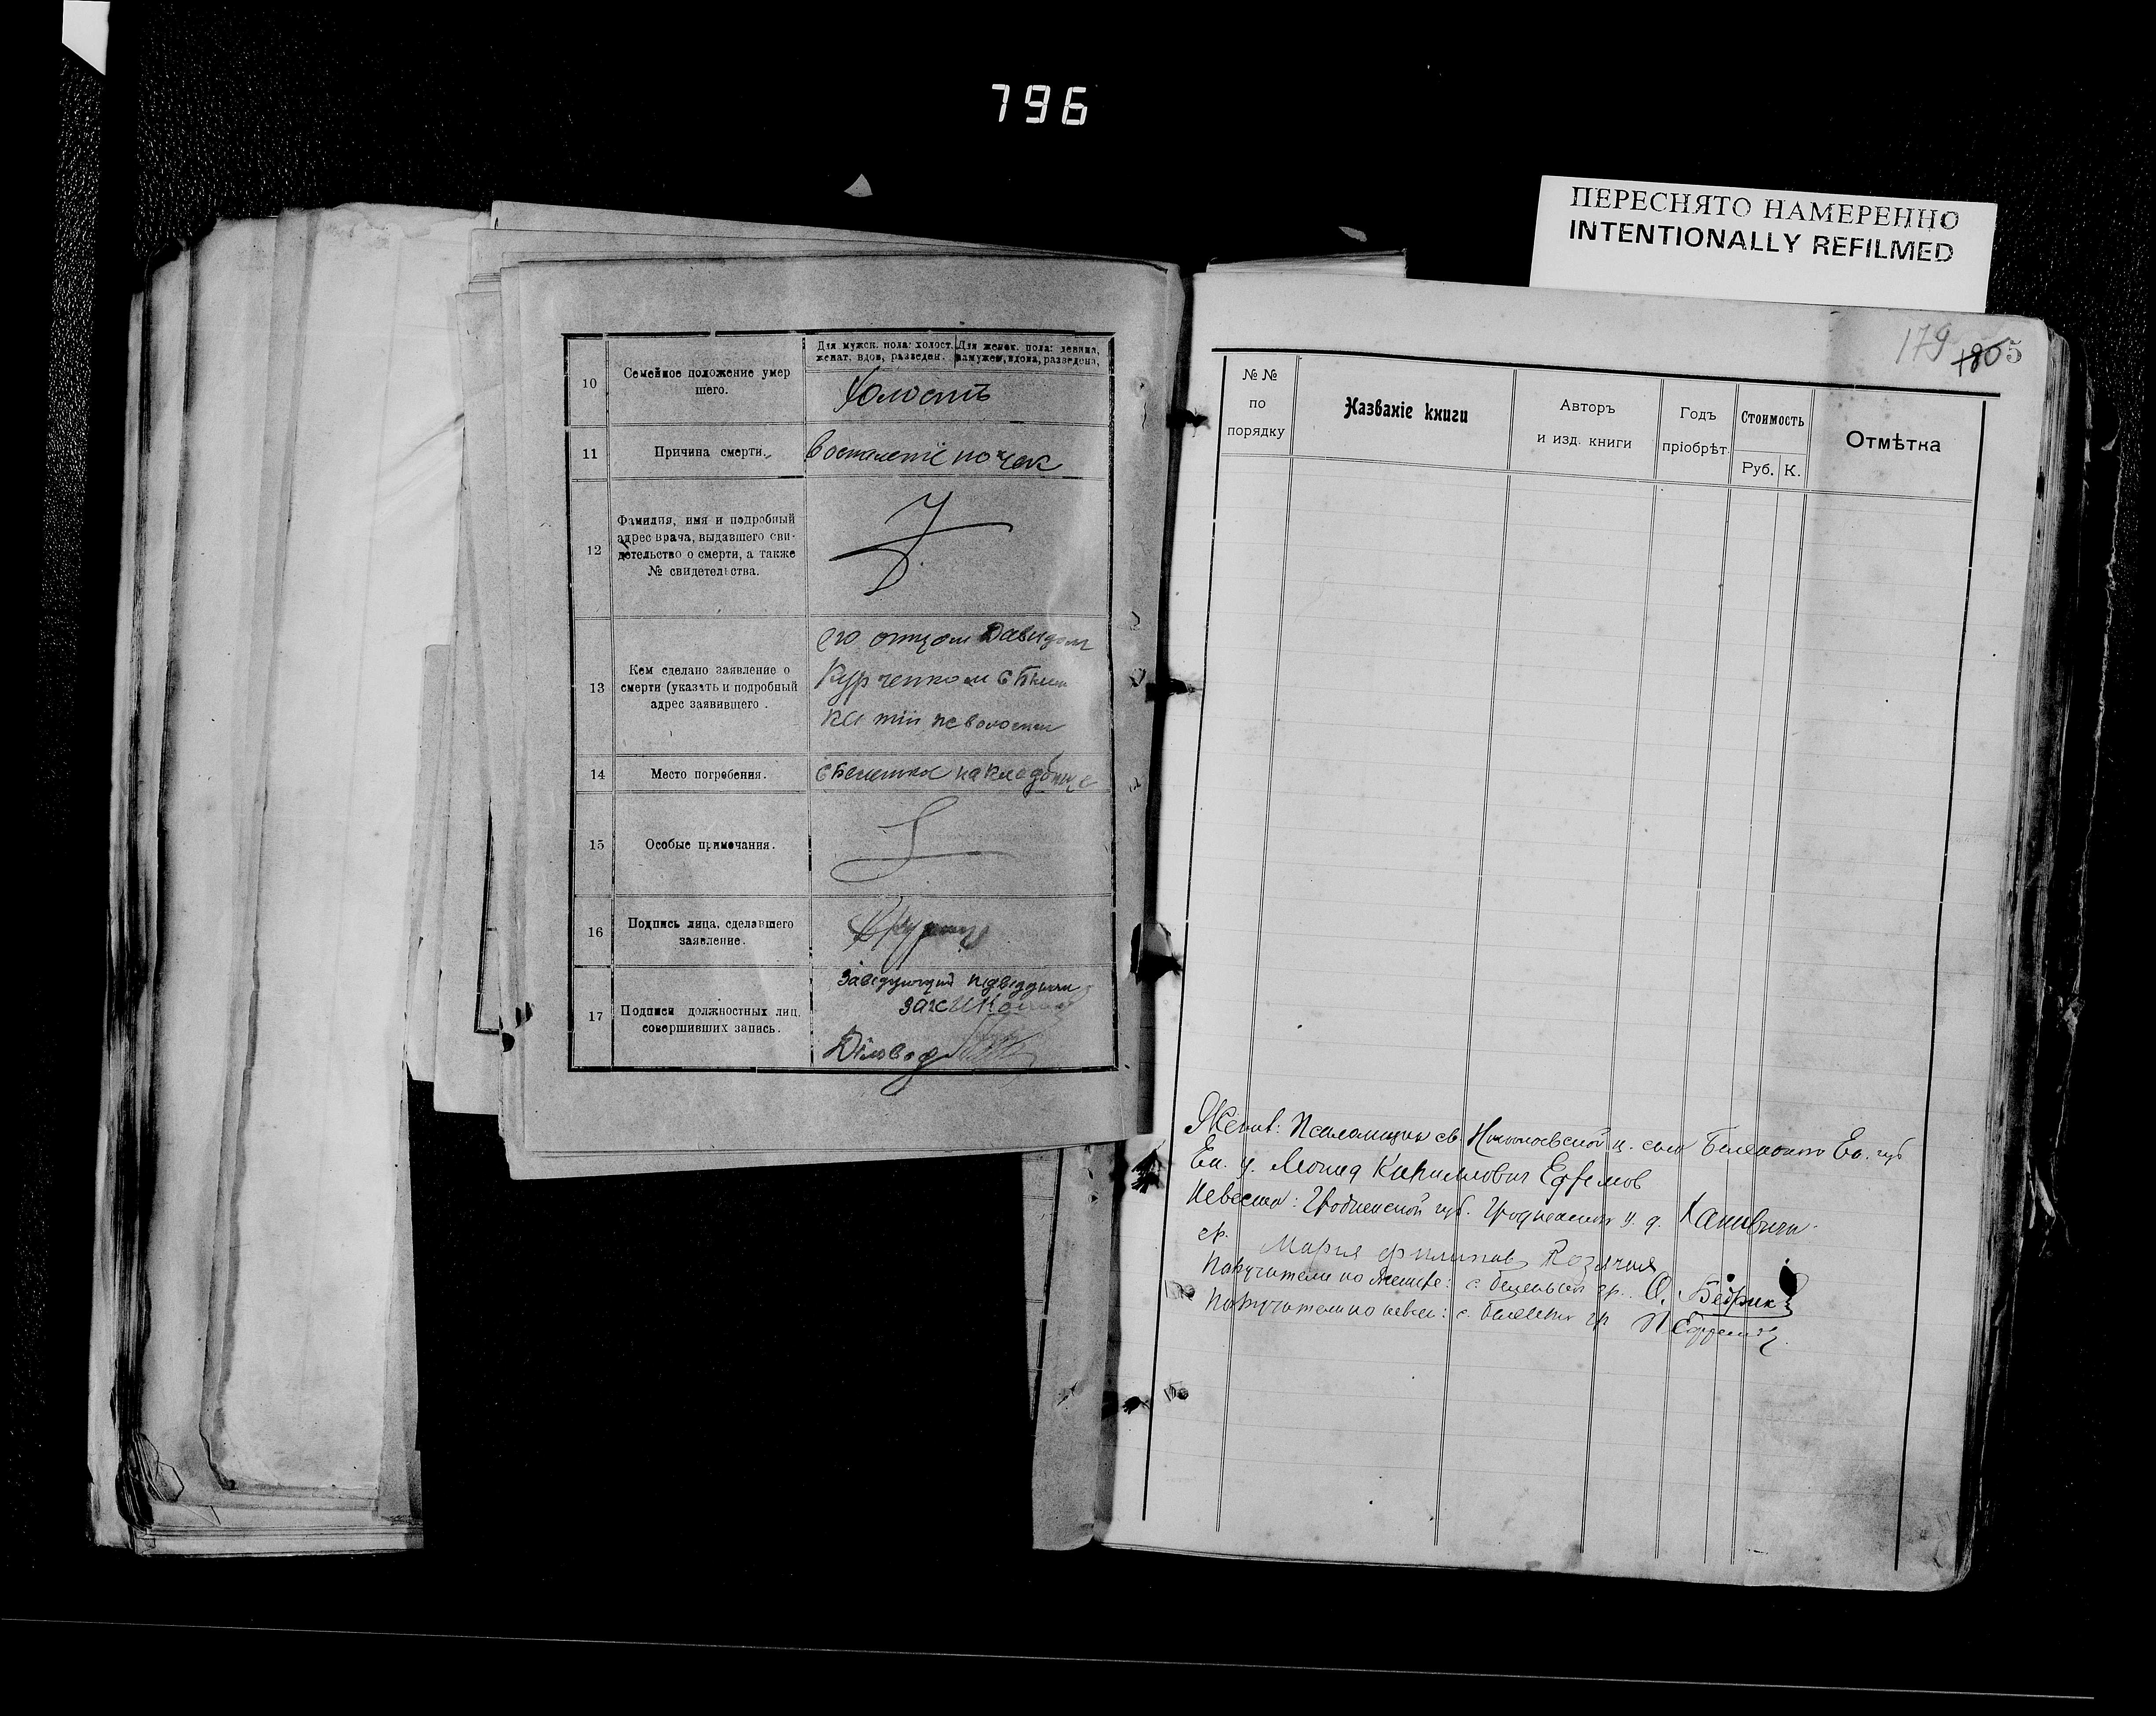 796
ПЕРЕСНЯТО НАМЕРЕННО
INTENTIONALLY REFILMED
10
Семейное положение умер
шего.
Для мужск. пола: холост,
женат, вдов, разведен.
Для женск. пола: девица,
замужем, вдова, разведена,
Холостъ
11
Причина смерти.
почек
12
Фамилия, имя и подробный
адрес врача, выдавшего сви-
детельство о смерти, а также
№ свидетельства.
13
Кем сделано заявление о
смерти (указать и подробный
адрес заявившего .
его отцом Давидом
Курченком
волости
14
Место погребения.
на кладбище
15
Особые примечания.
16
Подпись лица, сделавшего
заявление.
17
Подписи должностных лиц,
совершивших запись.
Заведующий
Діловод
179 1805
№ №
по
порядку
Названіе книги
Авторъ
и изд. книги
Годъ
пріобрѣт.
Стоимость
Руб. К.
Отмѣтка
Жених: Псаломщик св. Николаевской ц. села Беленького Ек. губ
Ек. у. Леонид Кириллович Ефремов
Невеста: Гродненской губ. Гродненского у. д.
гр. Мария Филипов Козячая
Поручители по жениху: с. Беленькое гр. О. Бедрик
Поручители по невес: с. Беленькое гр П Ефремов